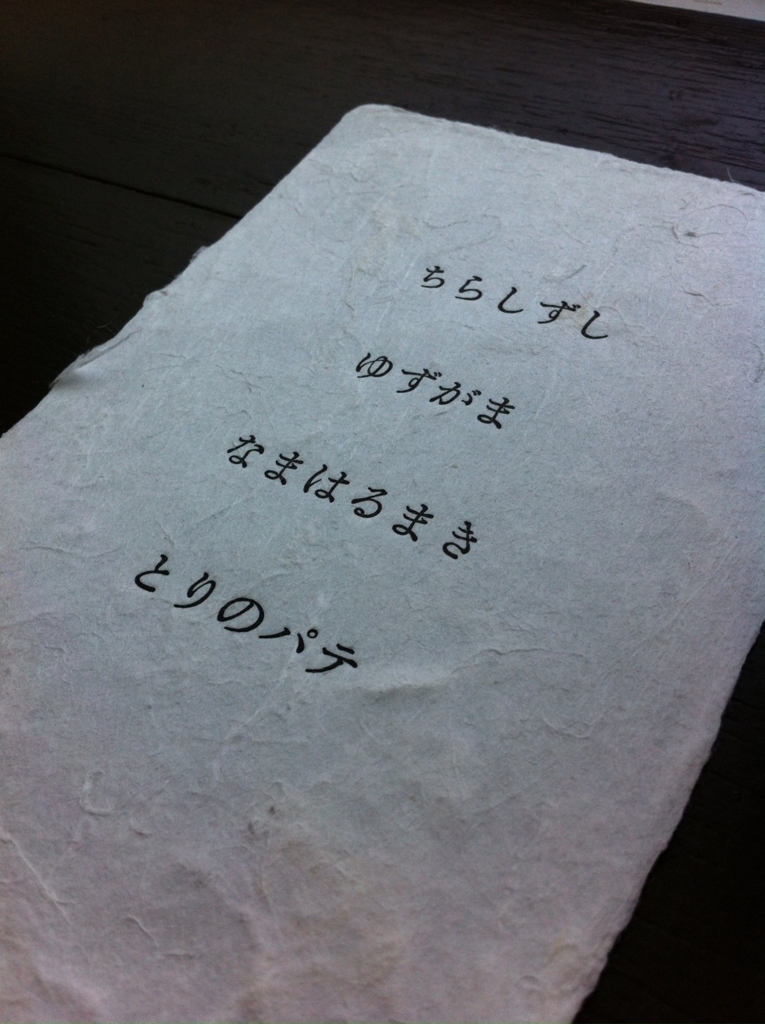 ちらしずし
ゆずがま
なまはるまき
とりのパテ